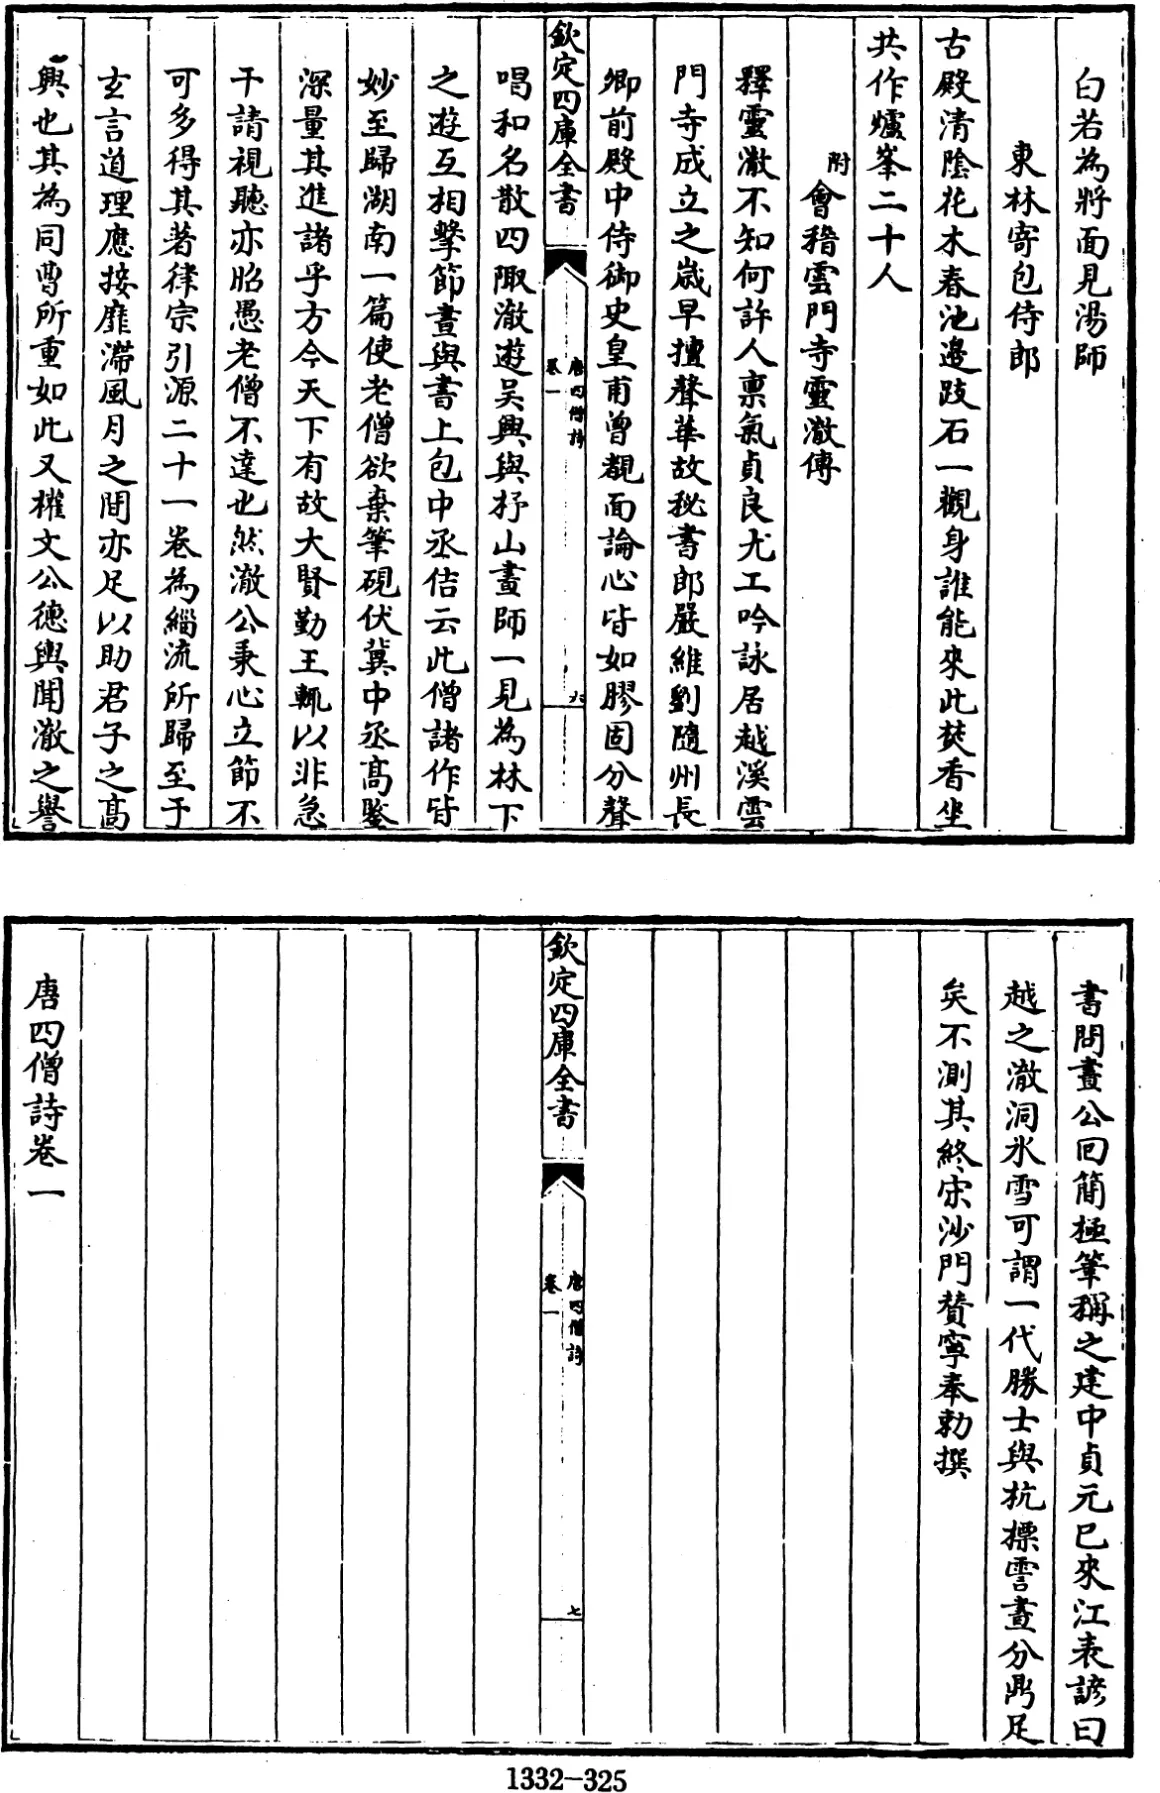 白若為將面見湯師
東林寄包侍郎
古殿清陰花木春池邊跂石一觀身誰能來此焚香坐
共作爐峯二十人
附會稽雲門寺靈澈傳
釋靈澈不知何許人稟氣貞良尤工吟詠居越溪雲
門寺成立之歲早擅聲華故秘書郎嚴維劉隨州長
卿前殿中侍御史皇甫曾覩面論心皆如膠固分聲
欽定四庫全書
唐四僧詩
卷一
六
唱和名散四陬澈遊吴興與抒山晝師一見為林下
之遊互相擊節晝與書上包中丞佶云此僧諸作皆
妙至歸湖南一篇使老僧欲棄筆硯伏冀中丞高鑒
深量其進諸乎方今天下有故大賢勤王輒以非急
干請視聽亦昭愚老僧不達也然澈公秉心立節不
可多得其著律宗引源二十一卷為緇流所歸至于
玄言道理應接靡滯風月之間亦足以助君子之高
興也其為同曹所重如此又權文公德輿聞澈之譽
書問晝公回簡極筆稱之建中貞元已來江表諺曰
越之澈洞氷雪可謂一代勝士與杭摽霅晝分鼎足
矣不測其終宋沙門賛寧奉勅撰
欽定四庫全書
唐四僧詩
卷一
七
唐四僧詩卷一
1332-325